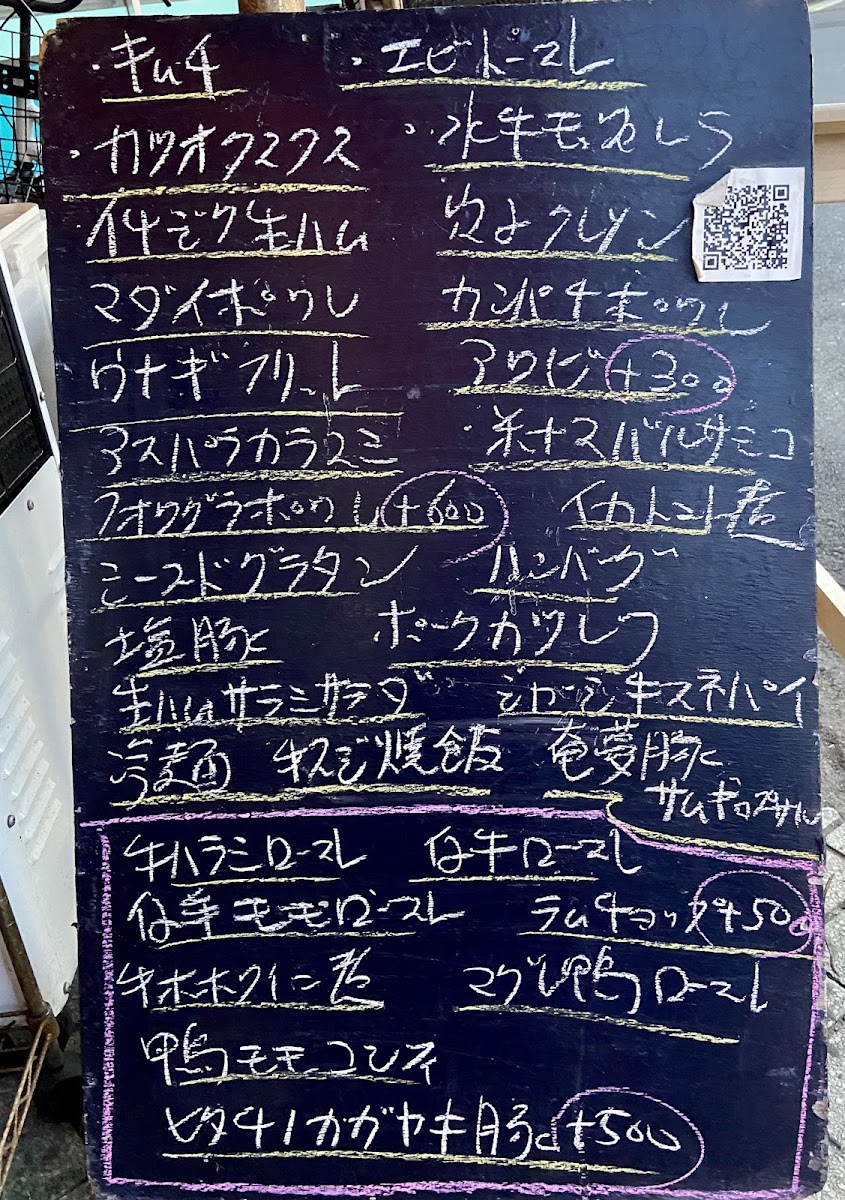 ・キムチ ・エビトースト
・カツオクスクス ・水牛モッツァレラ
イチジク生ハム 穴子クレソン
マダイポワレ カンパチポワレ
ウナギフリット アワビ+300
アスパラカラスミ ・米ナスバルサミコ
フォワグラポワレ+600 イカトマト煮
シーフードグラタン ハンバーグ
塩豚 ポークカツレツ
生ハムサラミサラダ キスネパイ
冷麺 牛スジ焼飯 奄夢豚
サムギョプサル
牛ハラミロースト 仔牛ロースト
仔羊モモロースト ラムチョップ+500
牛ホホワイン煮 マグレ鴨ロースト
鴨モモコンフィ
ヒタチノカガヤキ豚+500